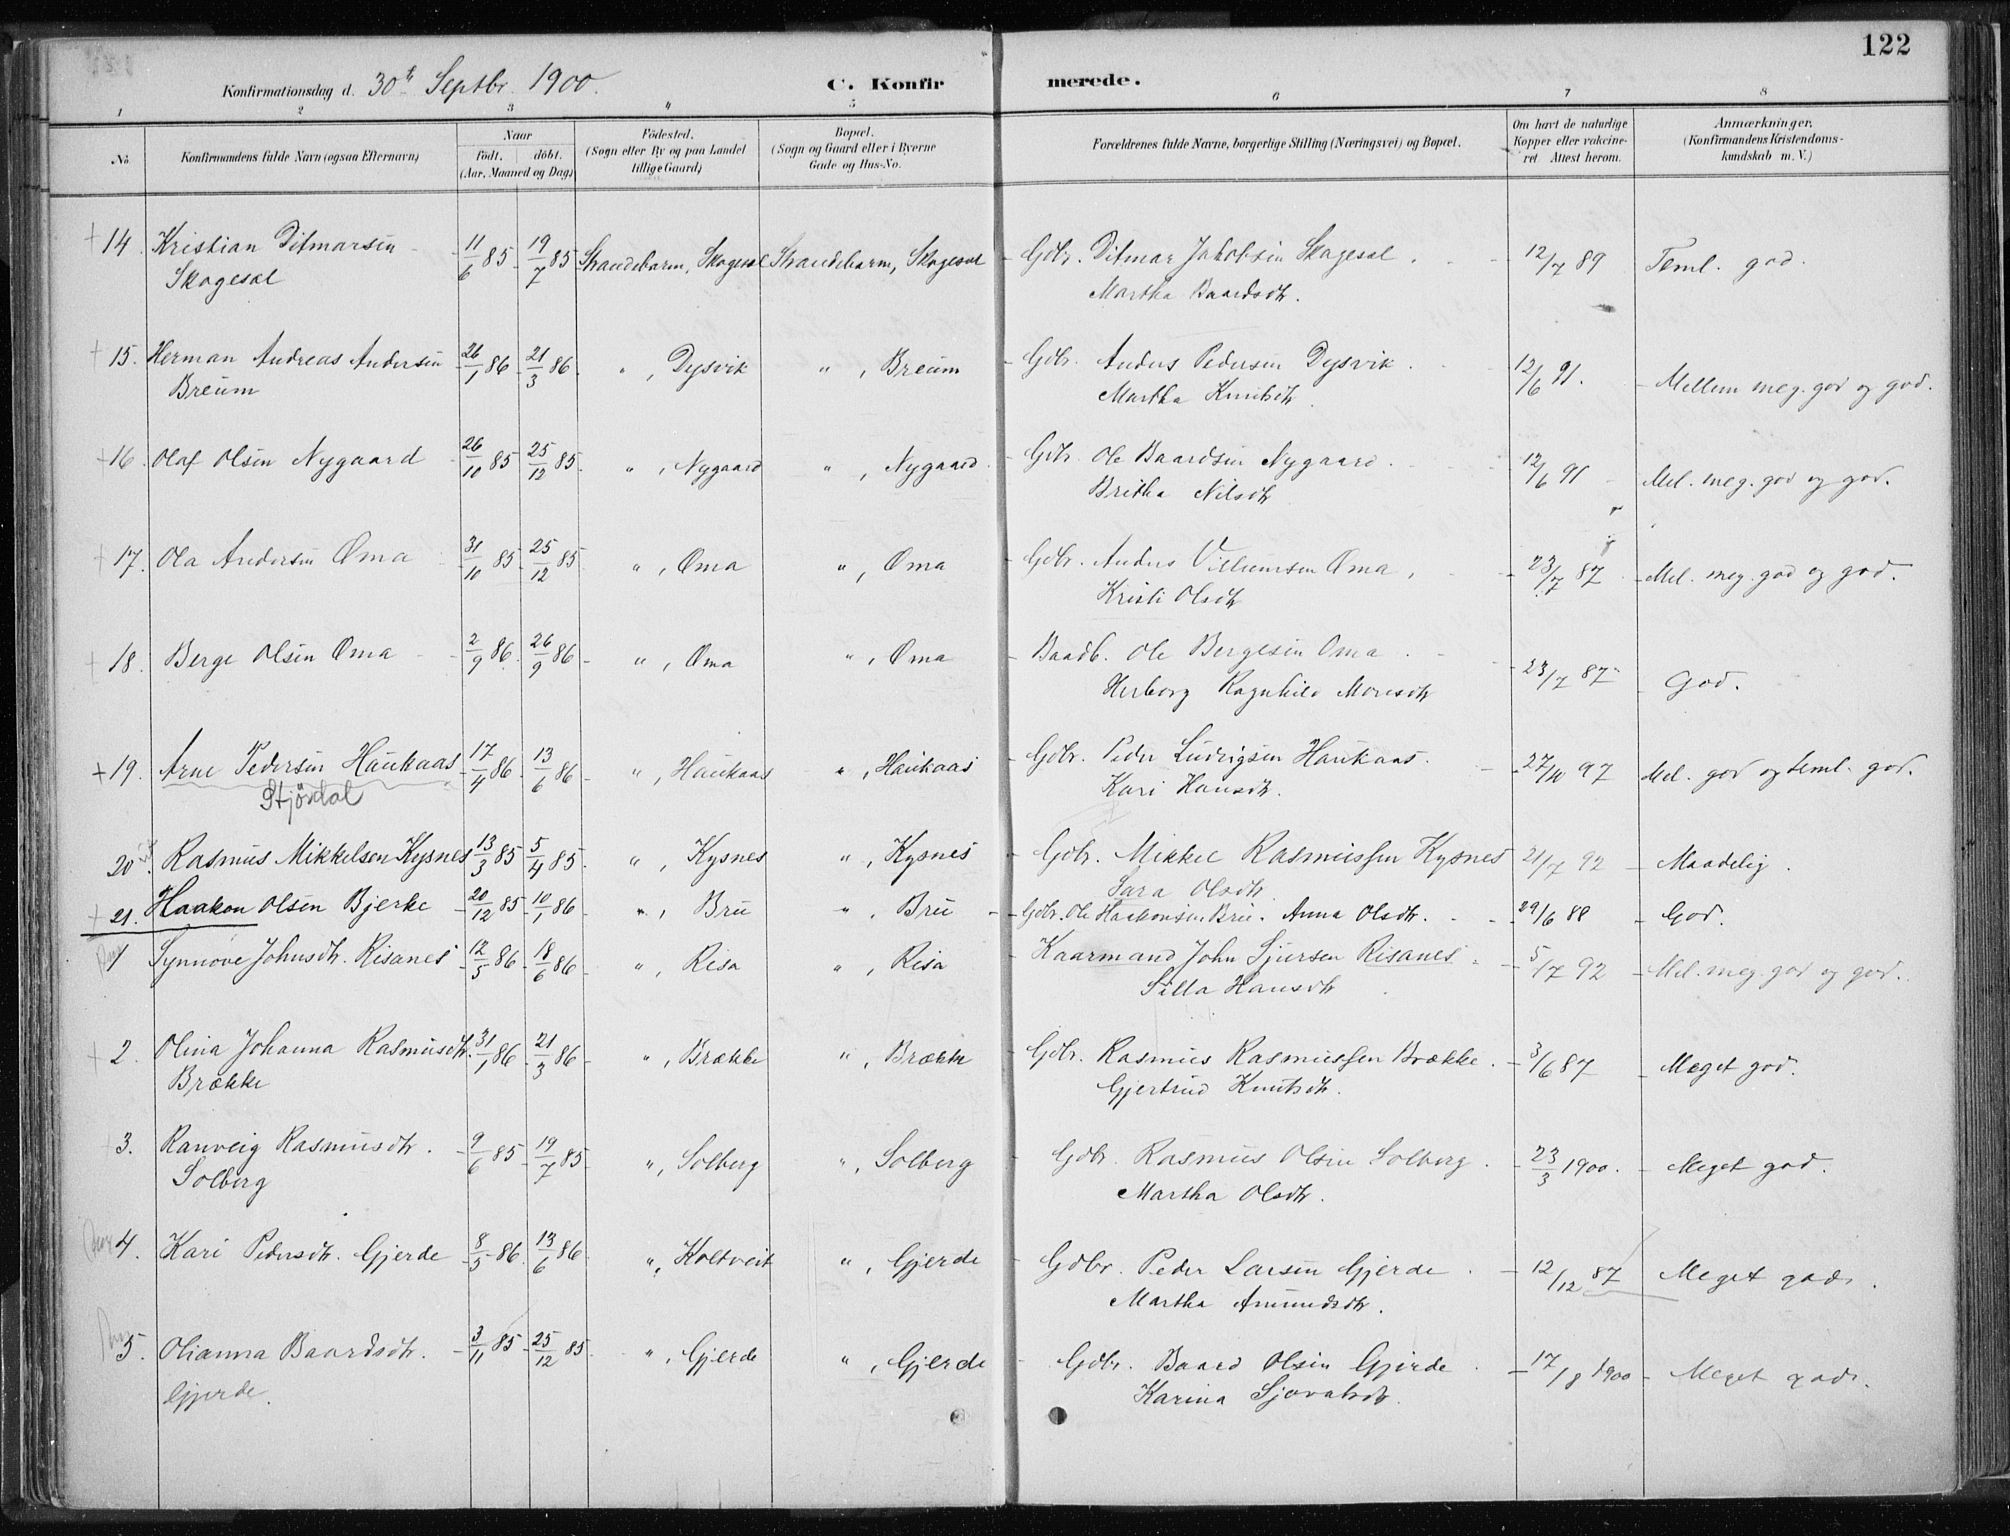 122
Konfirmationsdag d. 30te Septbr. 1900. C. Konfirmerede.
1 2 3 " 5 6 7 8
No. Konfirmandens fulde Navn (ogsaa Efternavn) Naar födt. döbt. (Aar, Maaned og Dag) Födested. (Sogn eller By og paa Landet tillige Gaard) Bopæl. (Sogn og Gaard eller i Byerne Gade og Hus-No. Forældrenes fulde Navne, borgerlige Stilling (Næringsvei) og Bopæl. Om havt de naturlige Kopper eller vakcineret. Attest herom. Anmærkninger. (Konfirmandens Kristendomskundskab m. V.)
+ 14. Kristian Ditmarsen 11/6 85 19/7 85 Strandebarm, Skogesal Strandebarm, Skogesal Gdbr. Ditmar Jakobsen Skogesal 12/7 89 Teml. god.
Skogesal Martha Baardsdtr.
+ 15. Herman Andreas Andersen 26/1 86 21/3 86 " , Dysvik " , Breum Gdbr. Anders Pedersen Dysvik 12/6 91. Mellem meg. god og god.
Breum Martha Knutsdtr.
16. Olaf Olsen Nygaard 26/10 85 25/12 85 " , Nygaard " , Nygaard Gdbr. Ole Baardsen Nygaard 12/6 91 Mel. meg. god og god.
Britha Nilsdtr
+ 17. Ola Andersen Oma 31/10 85 25/12 85 " , Oma " , Oma Gdbr. Anders Villumsen Oma 23/7 87 Mel. meg. god og god.
Kristi Olsdtr
+ 18. Berge Olsen Oma 2/9 86 26/9 86 " , Oma " , Oma Baadb. Ole Bergesen Oma 23/7 87 God.
Herborg Ragnhild Monsdtr
+ 19. Arne Pedersen Haukaas 17/4 86 13/6 86 " , Haukaas " , Haukaas Gdbr. Peder Ludvigsen Haukaas 27/10 97 Mel. god og teml. god.
Stjørdal Kari Hansdtr.
20. Rasmus Mikkelsen Kysnes 13/3 85 5/4 85. " , Kysnes " , Kysnes Gdbr. Mikkel Rasmussen Kysnes 21/7 92 Maadelig.
Sara Olsdtr
+ 21. Haakon Olsen Bjerke 20/12 85 10/1 86 " , Bru " , Bru Gdbr. Ole Haakonsen Bru. Anna Olsdtr. 29/6 88 God.
1 Synnove Johnsdtr. Risanes 12/5 86 18/6 86 " , Risa " , Risa Kaarmand John Sjursen Risanes 5/7 92 Mel. meg. god og god.
Silla Hansdtr
+ 2. Olina Johanna Rasmusdtr. 31/1 86 21/3 86 " , Brække " , Brække Gdbr. Rasmus Rasmussen Brække 3/6 87 Meget god.
Brække Gjertrud Knutsdtr.
3. Ranveig Rasmusdtr. 9/6 85 19/7 85 " , Solberg " , Solberg Gdbr. Rasmus Olsen Solberg 23/3 1900. Meget god.
Solberg Martha Olsdtr.
4. Kari Pedersdtr. Gjerde 8/5 86 13/6 86 " , Koltveit " , Gjerde Gdbr. Peder Larsen Gjerde 12/12 87 Meget god.
Martha Amundsdtr.
5. Olianna Baardsdtr. 3/11 85 25/12 85 " , Gjerde " , Gjerde Gdbr. Baard Olsen Gjerde 17/8 1900 Meget god.
Gjerde.